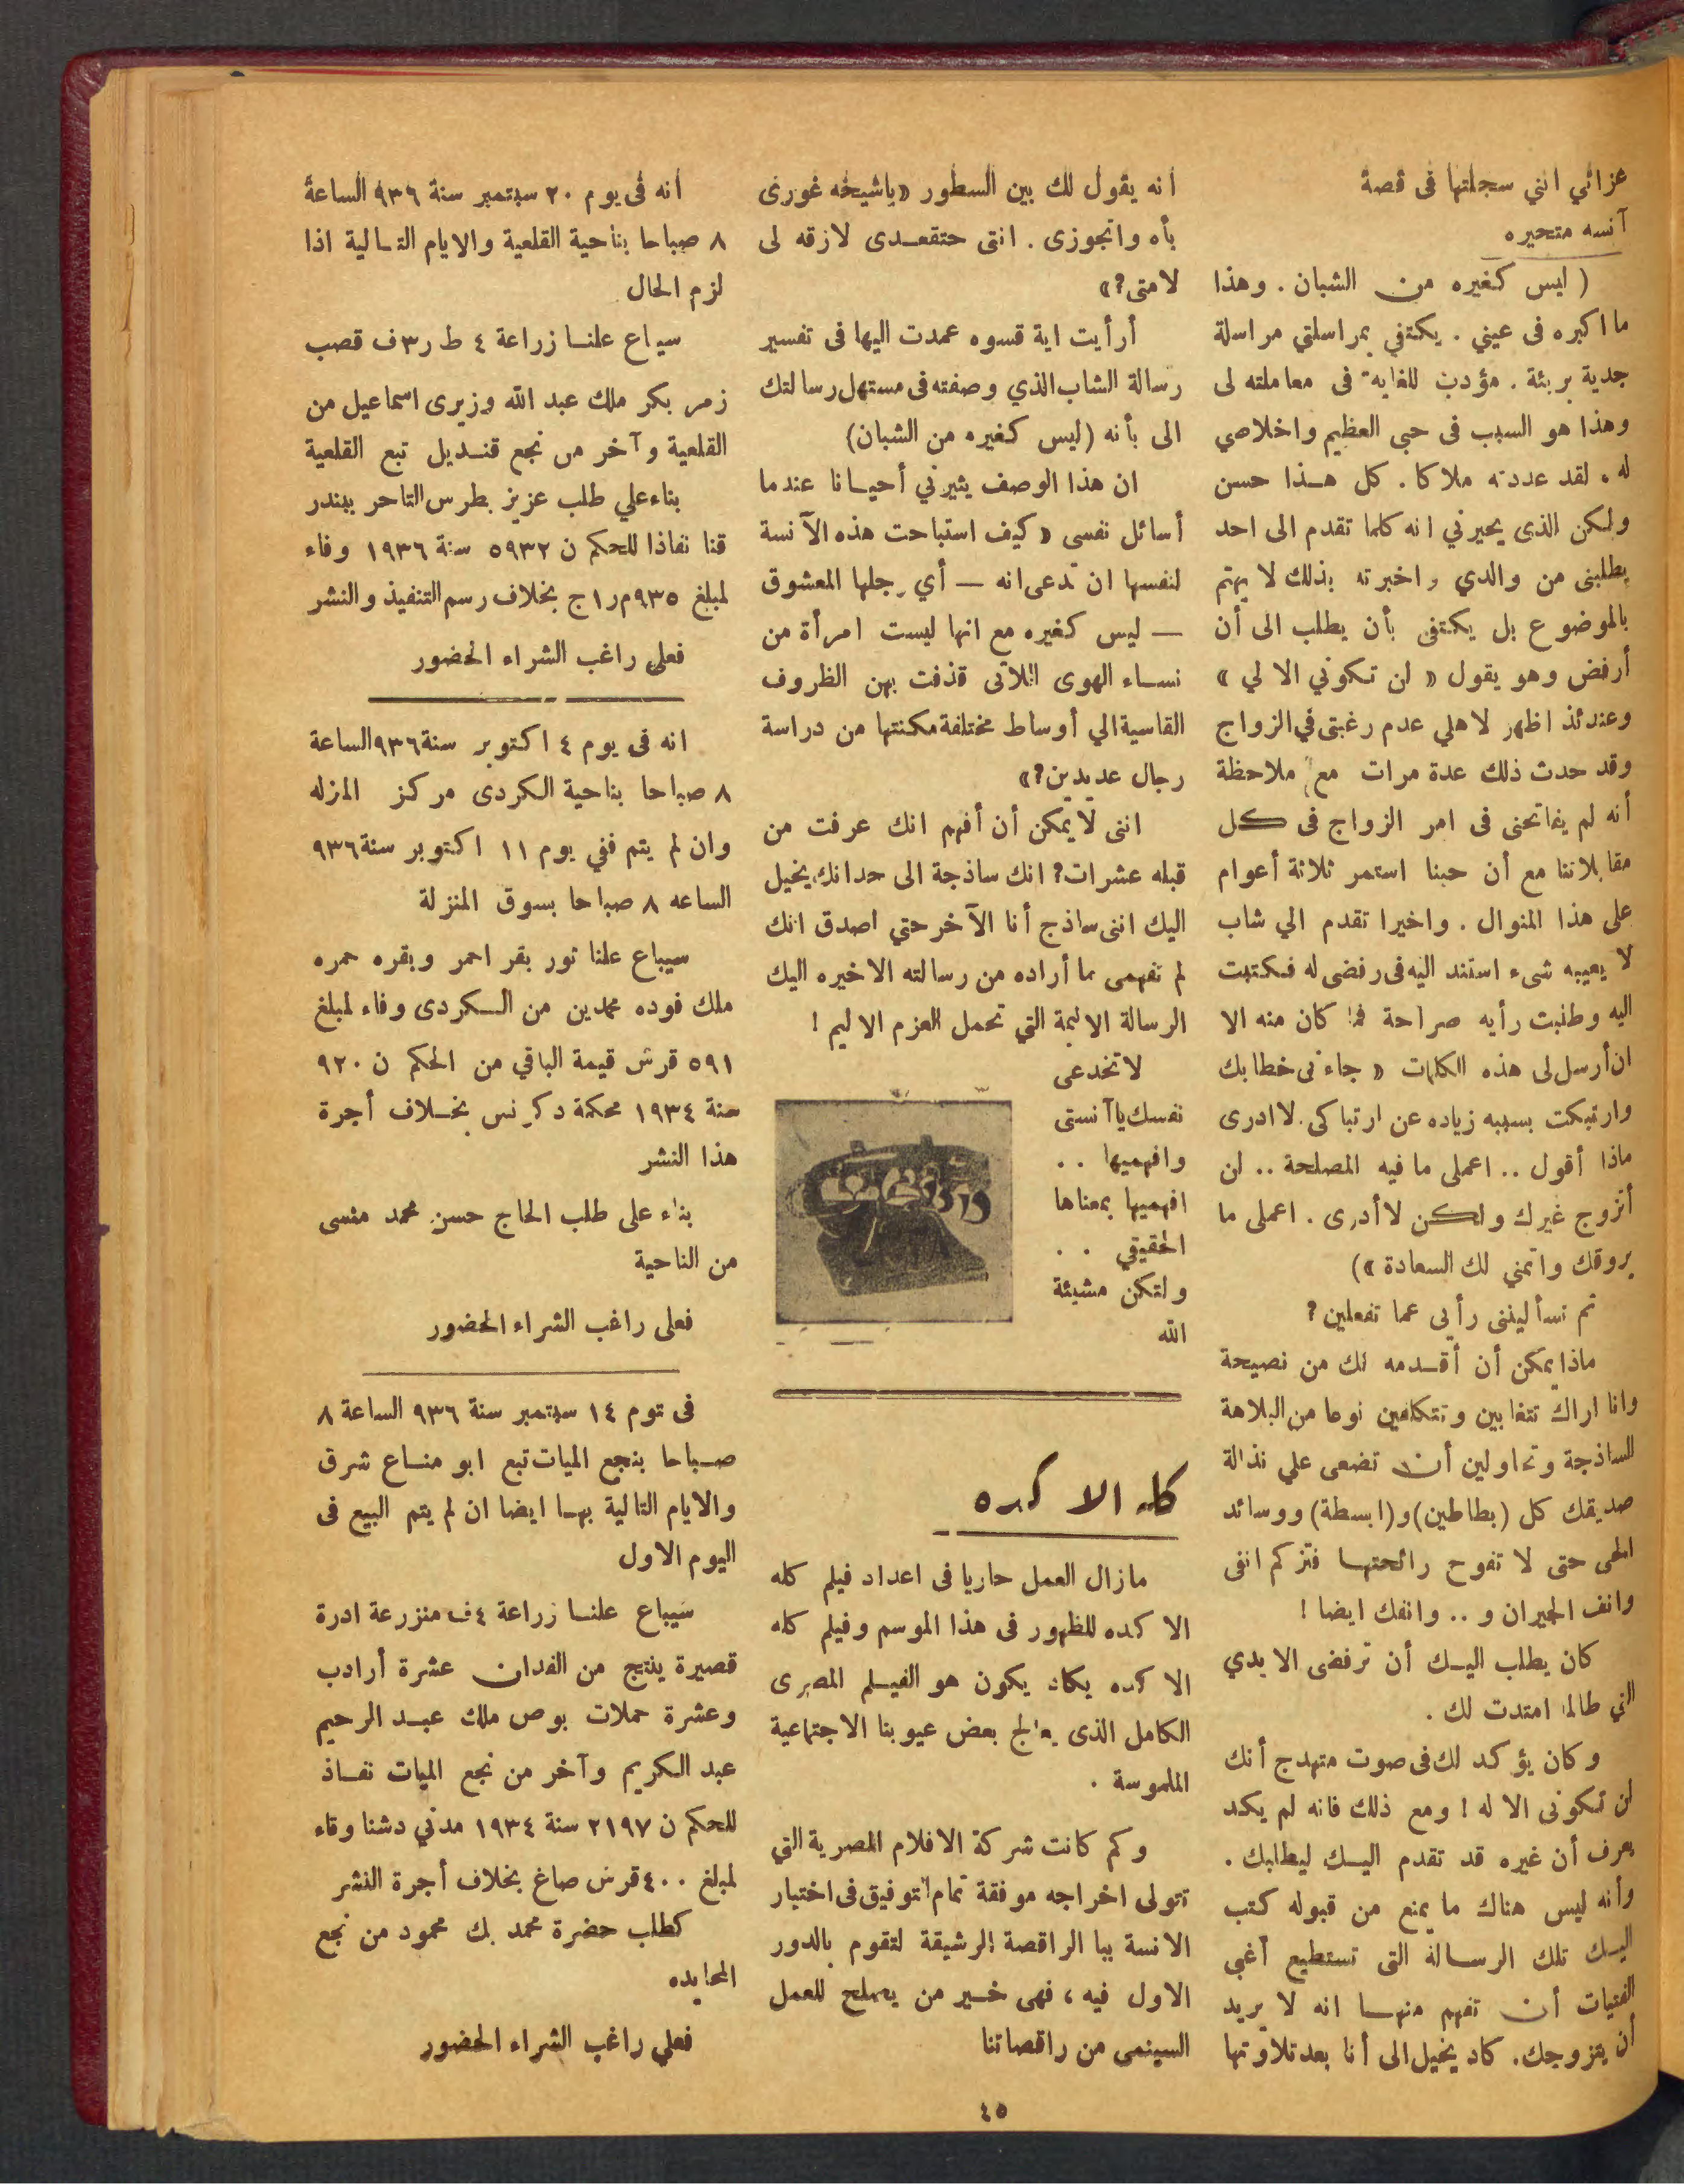 عزائي انني سجلتها فى قصة
آنسه متحيره
( ليس كغيره من الشبان . وهذا
ما اكبره فى عيني . يكتفي بمراسلتي مراسلة
جدية بريئة . مؤدب للغاية فى معاملته لى
وهذا هو السبب فى حبى العظيم واخلاصي
له . لقد عددته ملاكا . كل هذا حسن
ولكن الذى يحيرني انه كلما تقدم الى احد
يطلبنى من والدي واخبرته بذلك لا يهتم
بالموضوع بل يكتفى بأن يطلب الى أن
أرفض وهو يقول « لن تكوني الا لي »
وعندئذ اظهر لاهلي عدم رغبتى في الزواج
وقد حدث ذلك عدة مرات مع ملاحظة
أنه لم يفاتحنى فى امر الزواج فى كل
مقابلاتنا مع أن حبنا استمر ثلاثة أعوام
على هذا المنوال . واخيرا تقدم الي شاب
لا يعيبه شىء استند اليه فى رفضى له فكتبت
اليه وطلبت رأيه صراحة فما كان منه الا
ان أرسل لى هذه الكلمات « جاءنى خطابك
وارتبكت بسببه زياده عن ارتباكى . لا ادرى
ماذا أقول .. اعملى ما فيه المصلحة .. لن
أتزوج غيرك ولكن لا أدرى . اعملى ما
يروقك واتمني لك السعادة »)
ثم تسأليننى رأيى عما تفعلين ?
ماذا يمكن أن أقدمه لك من نصيحة
وانا اراك تتغابين وتتكلفين نوعا من البلاهة
الساذجة وتحاولين أن تضعى علي نذالة
صديقك كل (بطاطين) و(ابسطة) ووسائد
الحى حتى لا تفوح رائحتها فتزكم انفى
وانف الجيران و .. وانفك ايضا !
كان يطلب اليك أن ترفضى الايدي
التي طالما امتدت لك .
وكان يؤكد لك فى صوت متهدج أنك
لن تكونى الا له ! ومع ذلك فانه لم يكد
يعرف أن غيره قد تقدم اليك ليطلبك .
وأنه ليس هناك ما يمنع من قبوله كتب
اليك تلك الرسالة التى تستطيع أغبى
الفتيات أن تفهم منها انه لا يريد
أن يتزوجك . كاد يخيل الى أنا بعد تلاوتها
انه يقول لك بين السطور « ياشيخه غورى
بأه واتجوزى . انتى حتقعدى لازقه لى
لامتى ? »
أرأيت اية قسوه عمدت اليها فى تفسير
رسالة الشاب الذي وصفته فى مستهل رسالتك
الى بأنه (ليس كغيره من الشبان)
ان هذا الوصف يثيرني أحيانا عندما
أسائل نفسى « كيف استباحت هذه الآنسة
لنفسها ان تدعى انه — أي رجلها المعشوق
— ليس كغيره مع انها ليست امرأة من
نساء الهوى اللاتى قذفت بهن الظروف
القاسية الي أوساط مختلفة مكنتها من دراسة
رجال عديدين ? »
اننى لا يمكن أن أفهم انك عرفت من
قبله عشرات ? انك ساذجة الى حد انك يخيل
اليك اننى ساذج أنا الآخر حتي اصدق انك
لم تفهمى ما أراده من رسالته الاخيره اليك
الرسالة الاليمة التي تحمل العزم الاليم !
لا تخدعى
نفسك يا آنستى
وافهميها . .
افهميها بمعناها
الحقيقي . .
ولتكن مشيئة
الله
كله الا كده
مازال العمل جاريا فى اعداد فيلم كله
الا كده للظهور فى هذا الموسم وفيلم كله
الا كده يكاد يكون هو الفيلم المصرى
الكامل الذى يعالج بعض عيوبنا الاجتماعية
الملموسة .
وكم كانت شركة الافلام المصرية التي
تتولى اخراجه موفقة تمام التوفيق فى اختيار
الانسة ببا الراقصة الرشيقة لتقوم بالدور
الاول فيه ، فهى خير من يصلح للعمل
السينمى من راقصاتنا
انه فى يوم ٢٠ سبتمبر سنة ٩٣٦ الساعة
٨ صباحا بناحية القلعية والايام التالية اذا
لزم الحال
سيباع علنا زراعة ٤ ط ر٣ ف قصب
زمر بكر ملك عبد الله وزيرى اسماعيل من
القلعية وآخر من نجع قنديل تبع القلعية
بناء علي طلب عزيز بطرس التاجر ببندر
قنا نفاذا للحكم ن ٥٩٣٢ سنة ١٩٣٦ وفاء
لمبلغ ٩٣٥م ر١ج بخلاف رسم التنفيذ والنشر
فعلى راغب الشراء الحضور
انه فى يوم ٤ اكتوبر سنة ٩٣٦ الساعة
٨ صباحا بناحية الكردى مركز المنزله
وان لم يتم ففي يوم ١١ اكتوبر سنة ٩٣٦
الساعه ٨ صباحا بسوق المنزلة
سيباع علنا ثور بقر احمر وبقره حمره
ملك فوده محمدين من الكردى وفاء لمبلغ
٥٩١ قرش قيمة الباقي من الحكم ن ٩٢٠
سنة ١٩٣٤ محكمة دكرنس بخلاف أجرة
هذا النشر
بناء على طلب الحاج حسن محمد منسى
من الناحية
فعلى راغب الشراء الحضور
فى توم ١٤ سبتمبر سنة ٩٣٦ الساعة ٨
صباحا بنجع الميات تبع ابو مناع شرق
والايام التالية بها ايضا ان لم يتم البيع فى
اليوم الاول
سيباع علنا زراعة ٤ف منزرعة ادرة
قصيرة ينتج من الفدان عشرة أرادب
وعشرة حملات بوص ملك عبد الرحيم
عبد الكريم وآخر من نجع الميات نفاذ
للحكم ن ٢١٩٧ سنة ١٩٣٤ مدني دشنا وفاء
لمبلغ ٤٠٠ قرش صاغ بخلاف أجرة النشر
كطلب حضرة محمد بك محمود من نجع
المحايده
فعلي راغب الشراء الحضور
٤٥